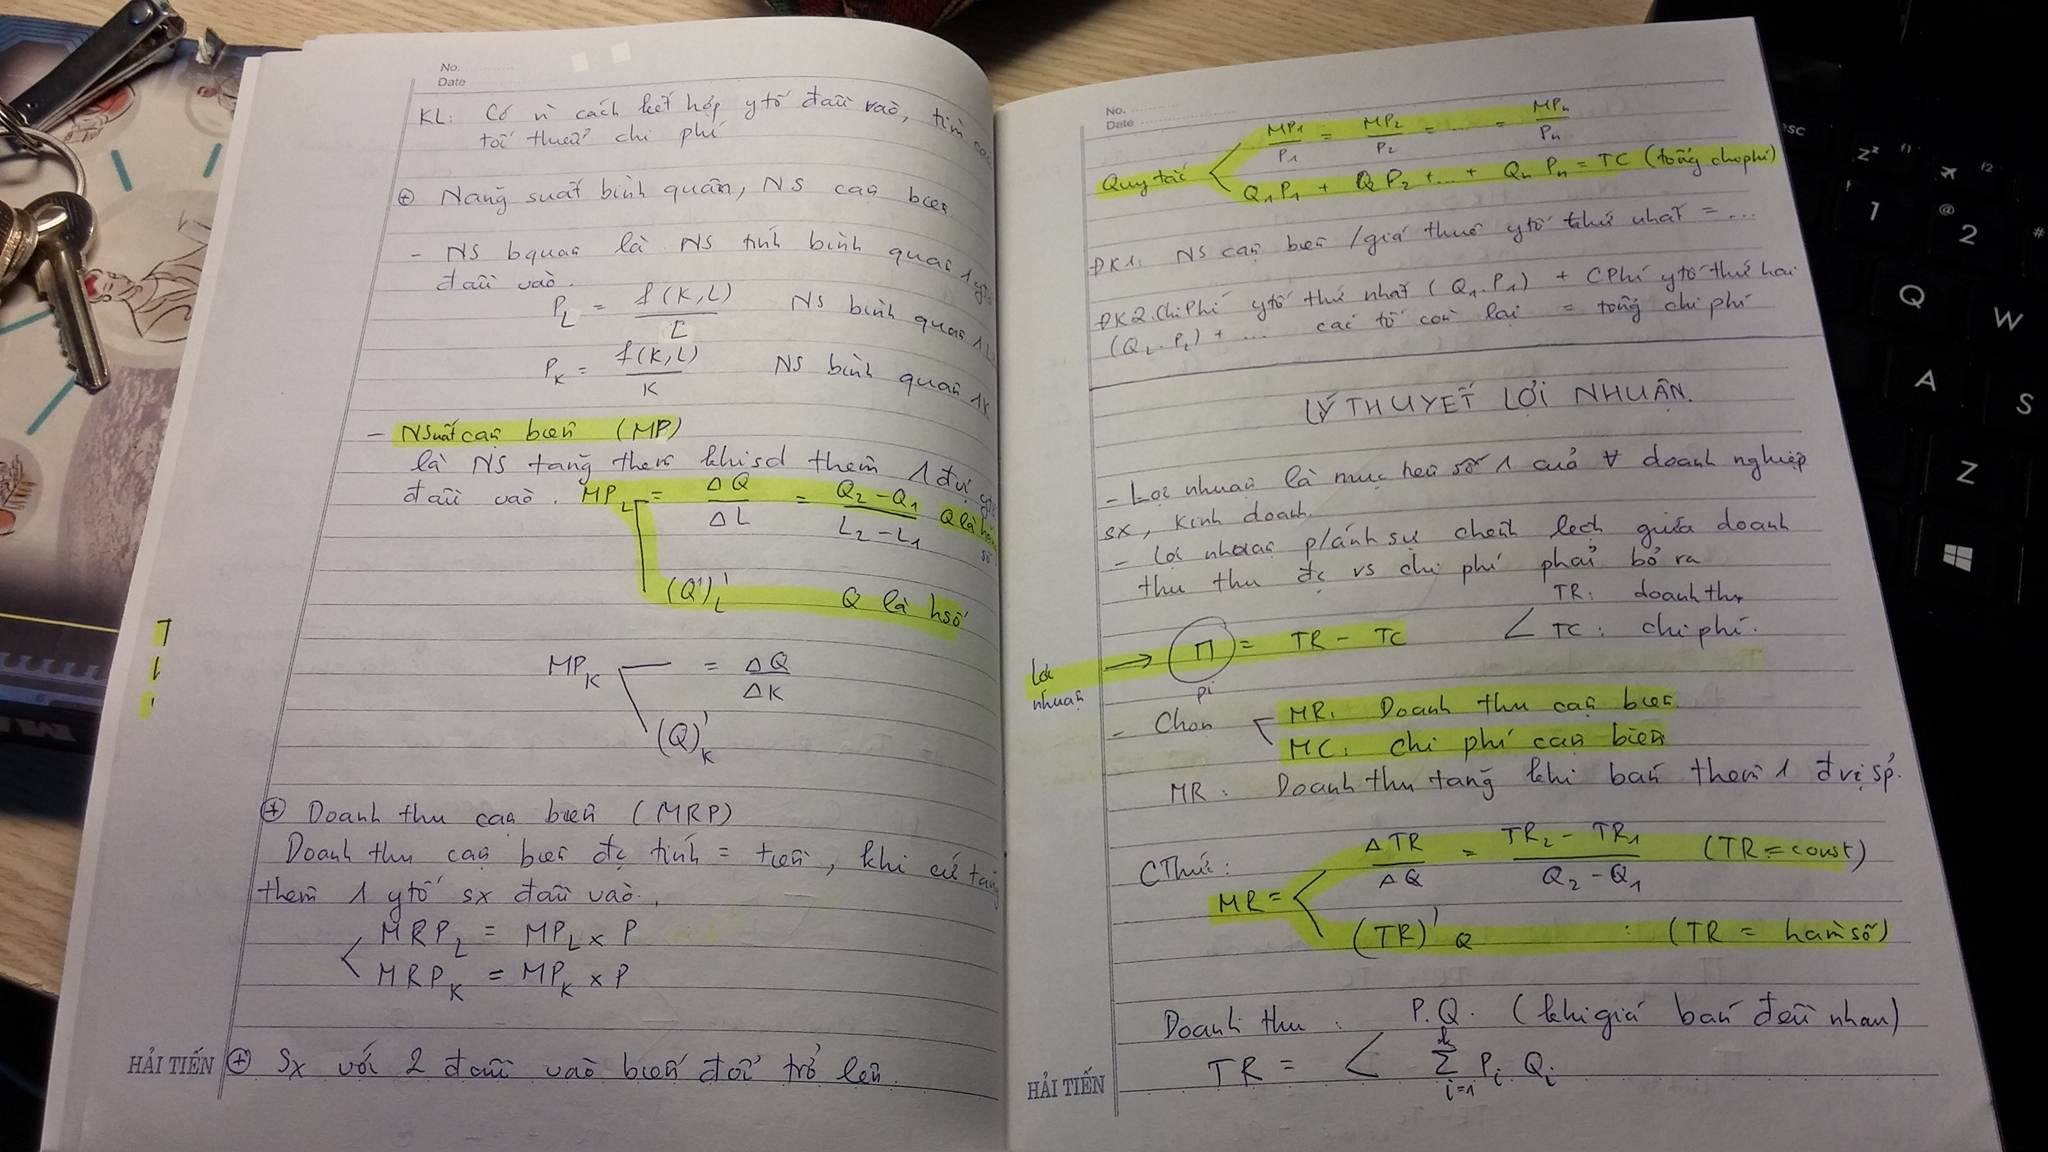 No.
Date
KL: Có n cách kết hợp ytố đầu vào, tìm
tối thiểu chi phí
⊕ Năng suất bình quân, NS cận biên
- NS bquân là NS tính bình quân 1 ytố
đầu vào.
P_L = f(K,L)/L NS bình quân 1 L
P_K = f(K,L)/K NS bình quân 1K
- NSuất cận biên (MP)
là NS tăng thêm khi sd thêm 1 đvị ytố
đầu vào. MP_L = ΔQ/ΔL = (Q2 - Q1)/(L2 - L1) Q là hằng
số
(Q)'_L Q là hsố
MP_K = ΔQ/ΔK
(Q)'_K
⊕ Doanh thu cận biên (MRP)
Doanh thu cận biên đc tính = tiền, khi cứ tăng
thêm 1 ytố sx đầu vào.
MRP_L = MP_L x P
MRP_K = MP_K x P
HẢI TIẾN
⊕ Sx với 2 đầu vào biến đổi trở lên.
No.
Date
Quy tắc
MP1/P1 = MP2/P2 = ... = MPn/Pn
Q1P1 + Q P2 + ... + Qn Pn = TC (tổng chi phí)
ĐK1: NS cận biên /giá thuê ytố thứ nhất = ...
ĐK2. Chi Phí ytố thứ nhất (Q1.P1) + CPhí ytố thứ hai
(Q2.P2) + ... các tố còn lại = tổng chi phí
LÝ THUYẾT LỢI NHUẬN.
- Lợi nhuận là mục tiêu số 1 của ∀ doanh nghiệp
sx, kinh doanh.
- Lợi nhuận p/ánh sự chênh lệch giữa doanh
thu thu đc vs chi phí phải bỏ ra
TR: doanh thu
Lợi nhuận → Π = TR - TC < TC: chi phí.
pi
- Chọn
MR: Doanh thu cận biên
MC: chi phí cận biên
MR: Doanh thu tăng khi bán thêm 1 đvị sp.
CThức:
MR = < ΔTR/ΔQ = (TR2 - TR1)/(Q2 - Q1) (TR = const)
(TR)'Q : (TR = hàm số)
Doanh thu: P.Q. (khi giá bán đều nhau)
TR = < k Σ i=1 Pi Qi
HẢI TIẾN
esc
1
@
2
#
Q
W
A
S
Z